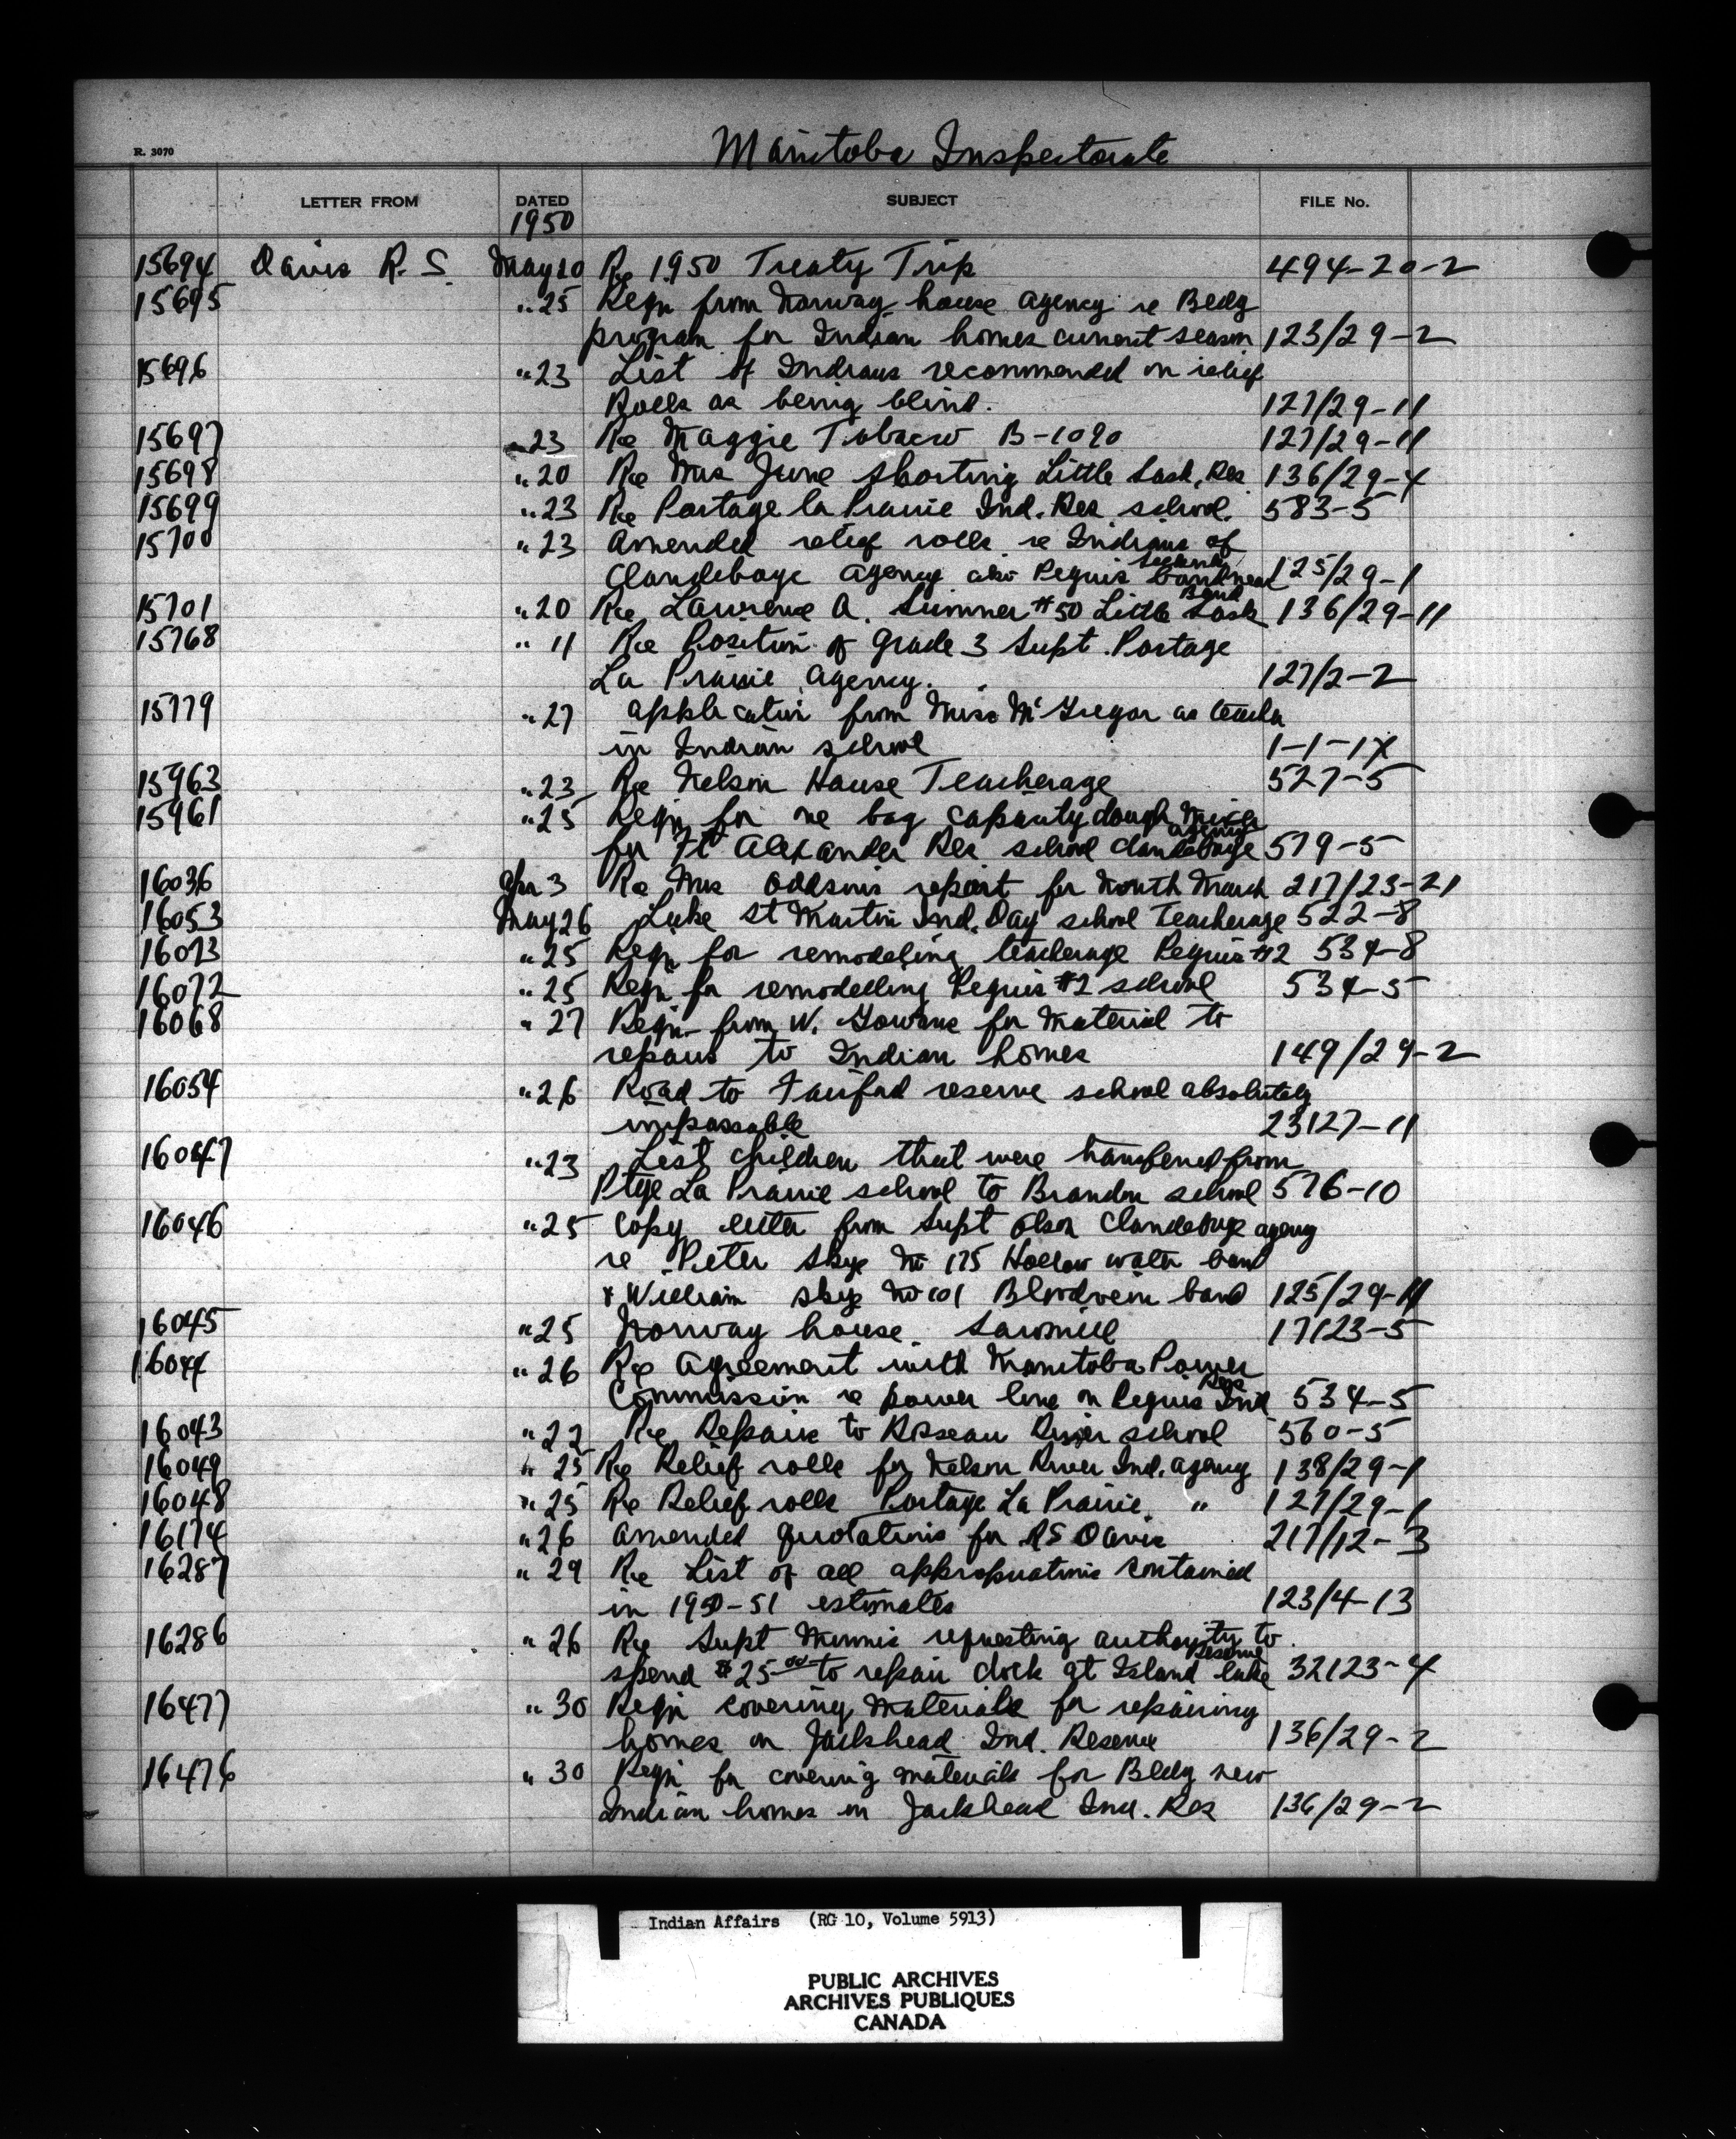 Manitoba Inspectorate
R. 3070
LETTER FROM DATED SUBJECT FILE No.
1950
15694 Davis R. S. May 20 Re 1950 Treaty Trip 494-20-2
15695 " 25 Reqn from Norway house agency re Bldg
program for Indian homes current season 123/29-2
15696 " 23 List of Indians recommended on relief
Rolls as being blind. 127/29-11
15697 " 23 Re Maggie Tobacco B-1090 127/29-11
15698 " 20 Re Mrs June Shorting Little Sask. Res 136/29-4
15699 " 23 Re Portage la Prairie Ind. Res. school. 583-5
15700 " 23 Amended relief rolls re Indians of
Clandeboye agency also Peguis band near 125/29-1
Band
15701 " 20 Re Lawrence A. Sumner #50 Little Sask 136/29-11
15768 " 11 Re Position of Grade 3 Supt. Portage
La Prairie Agency. 127/2-2
15779 " 27 application from Miss McGregor as teacher
in Indian school 1-1-1X
15963 " 23 Re Nelson House Teacherage 527-5
15961 " 25 Reqn for one bag capacity dough mixer
agency
for Ft Alexander Res. school Clandeboye 579-5
16036 Apr 3 Re Mrs Addsons report for Month March 217/23-21
16053 May 26 Lake St Martin Ind. Day school Teacherage 522-8
16073 " 25 Reqn for remodeling teacherage Peguis #2 534-8
16072 " 25 Reqn for remodelling Peguis #2 school 534-5
16068 " 27 Reqn from W. Gowans for Material to
repairs to Indian homes 149/29-2
16054 " 26 Road to Fairford reserve school absolutely
impassable 23127-11
16047 " 23 List children that were transferred from
Ptge La Prairie school to Brandon school 576-10
16046 " 25 Copy letter from Supt Olson Clandeboye agency
re Peter Skye No 175 Hollow water band
& William Skye No 101 Bloodvein band 125/29-11
16045 " 25 Norway house Sawmill 17123-5
16044 " 26 Re Agreement with Manitoba Power
Res
Commission re power line on Peguis Ind 534-5
16043 " 22 Re Repairs to Roseau River school 560-5
16049 " 25 Re Relief rolls for Nelson River Ind. agency 138/29-1
16048 " 25 Re Relief rolls Portage La Prairie " 127/29-1
16174 " 26 Amended quotations for RS Davis 217/12-3
16287 " 29 Re List of all appropriations contained
in 1950-51 estimates 123/4-13
16286 " 26 Re Supt Minnis requesting authority to
Reserve
spend $25.00 to repair dock at Island lake 32123-4
16477 " 30 Reqn covering Materials for repairing
homes on Jackhead Ind. Reserve 136/29-2
16476 " 30 Reqn for covering materials for Bldg new
Indian homes on Jackhead Ind. Res 136/29-2
Indian Affairs (RG 10, Volume 5913)
PUBLIC ARCHIVES
ARCHIVES PUBLIQUES
CANADA